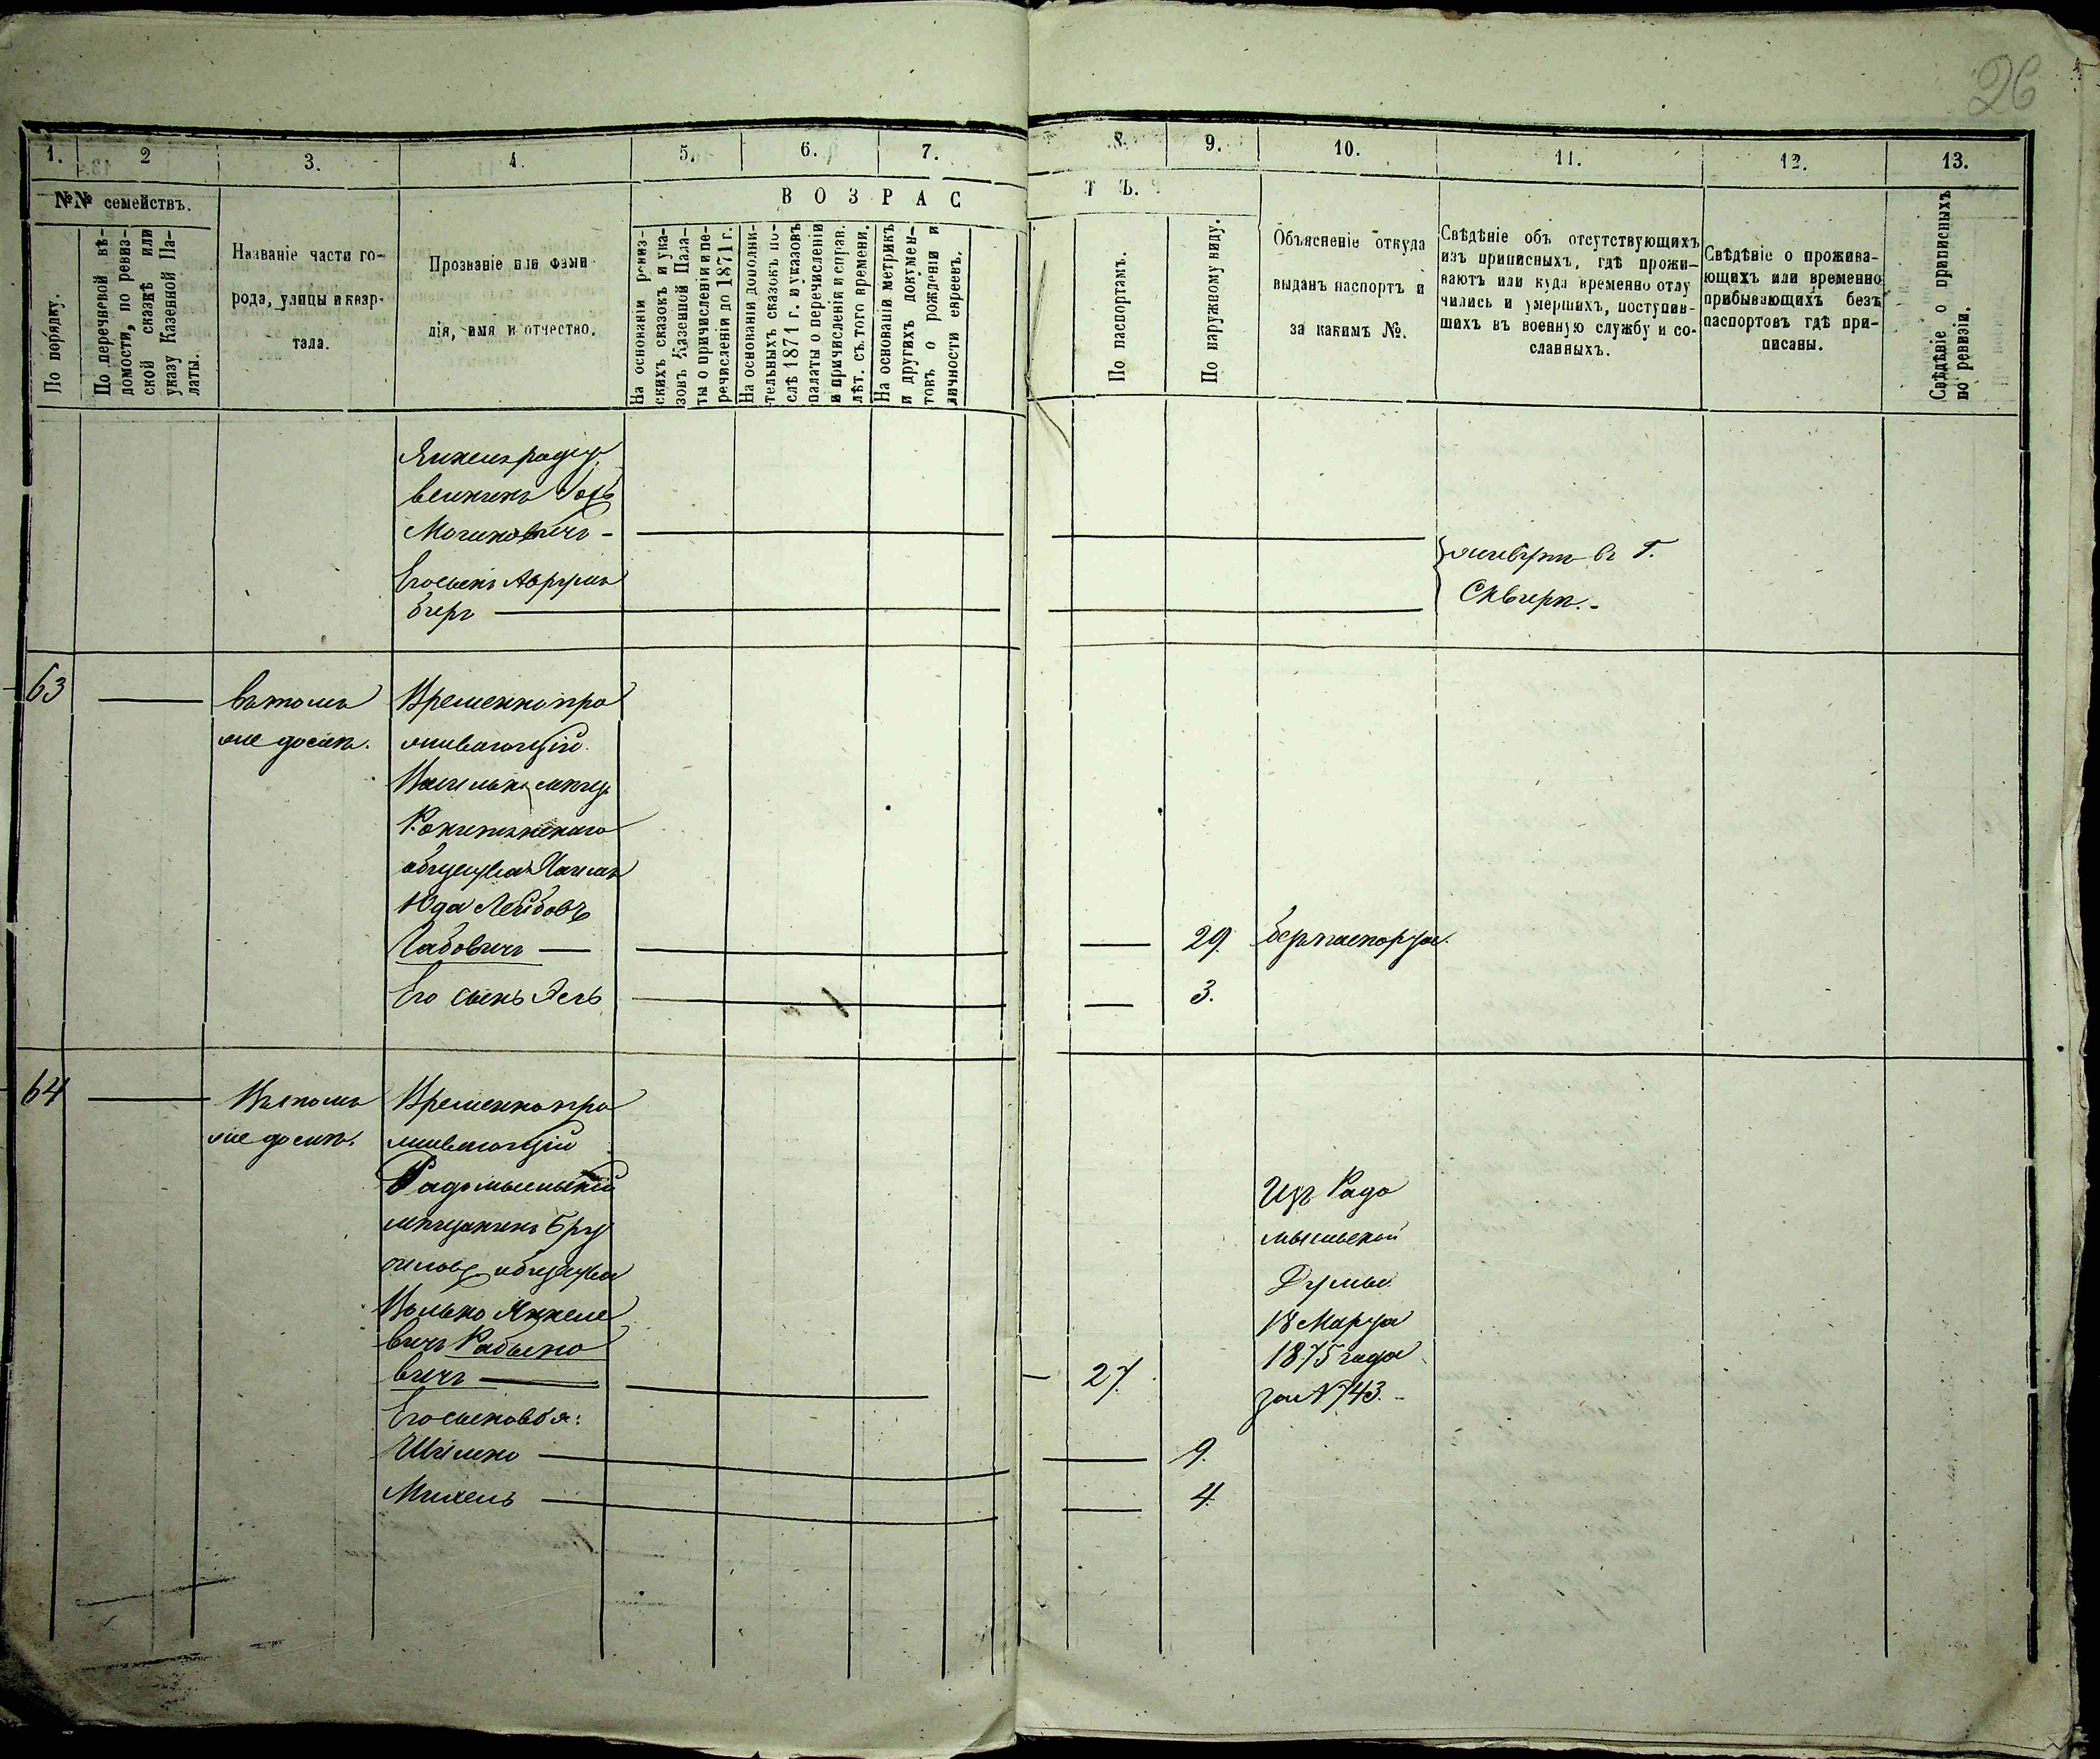 26
1. 2 3. 4. 5. 6. 7. 8. 9. 10. 11. 12. 13.
№№ семействъ.
По порядку.
По перечневой вѣ-
домости, по ревиз-
ской сказкѣ или
указу Казенной Па-
латы.
Названіе части го-
рода, улицы и квар-
тала.
Прозваніе или фами-
лія, имя и отчество.
ВОЗРАСТЪ.
На основаніи ревиз-
скихъ сказокъ и ука-
зовъ Казенной Пала-
ты о причисленіи и пе-
речисленіи до 1871 г.
На основаніи дополни-
тельныхъ сказокъ по-
слѣ 1871 г. и указовъ
палаты о перечисленіи
и причисленіи и справ.
лѣт. съ того времени.
На основаніи метрикъ
и другихъ докумен-
товъ о рожденіи и
личности евреевъ.
По паспортамъ.
По наружному виду.
Объясненіе откуда
выданъ паспортъ и
за какимъ №.
Свѣдѣніе объ отсутствующихъ
изъ приписныхъ, гдѣ прожи-
ваютъ или куда временно отлу
чились и умершихъ, поступив-
шихъ въ военную службу и со-
сланныхъ.
Свѣдѣніе о прожива-
ющихъ или временно
прибывающихъ безъ
паспортовъ гдѣ при-
писаны.
Свѣдѣніе о приписныхъ
по ревизіи.
Мошковичъ -
Его сынъ Аврумъ
беръ
живутъ въ г.
Сквирѣ.-
63
въ томъ
же домѣ.
Временно про
живающій
Васильк. мѣщ.
Рокитянскаго
общества Хаимъ
Юда Лейбов
Рабовичъ
29. безъ паспорта.
Его сынъ
3.
64
Въ томъ
же домѣ.
Временно про
живающій
Радомысльскій
мѣщанинъ Бру
силов. общества
Волько Янкеле
вичъ Рабино
вичъ
27
Изъ Радо
мысльской
Думы
18 Марта
1875 года
за № 743.-
Его сыновья:
Шлемко
9.
Михель
4.